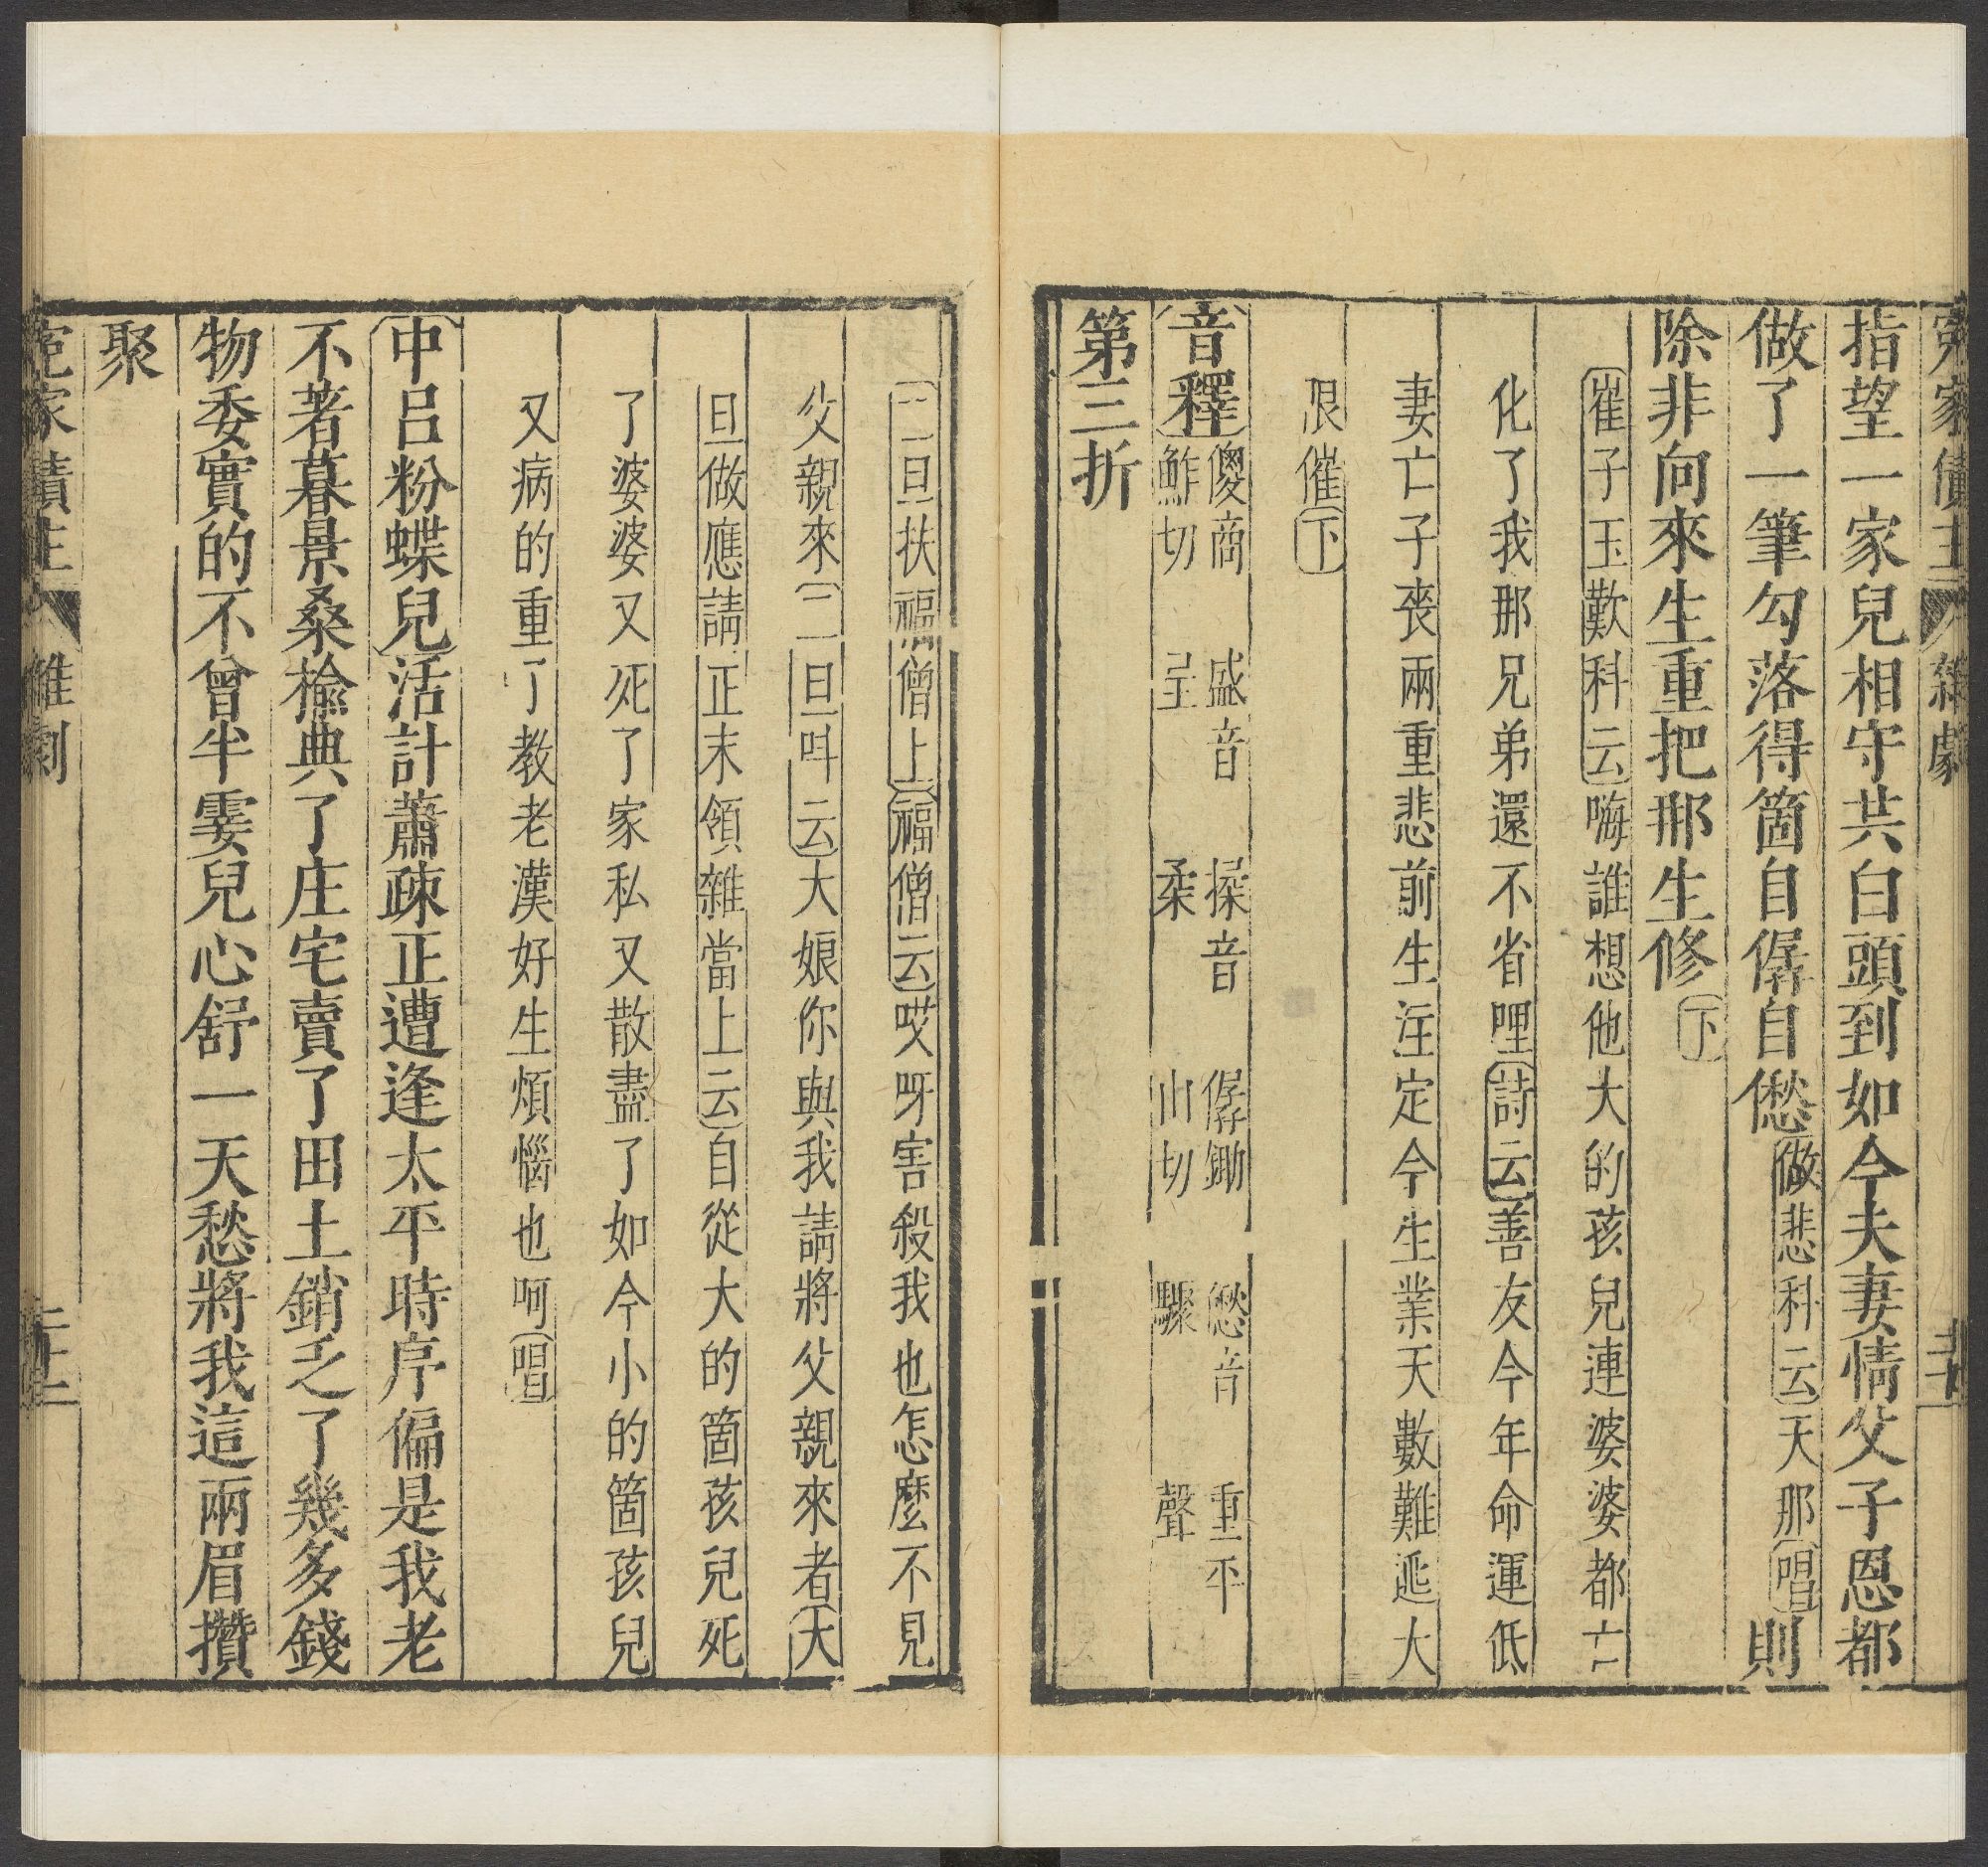 冤家債主 雜劇
指望一家兒相守共白頭到如今夫妻情父子恩都
做了一筆勾落得箇自僝自僽做悲科云天那唱則
除非向來生重把那生修下
崔子玉歎科云嗨誰想他大的孩兒連婆婆都亡
化了我那兄弟還不省哩詩云善友今年命運低
妻亡子喪兩重悲前生注定今生業天數難逃大
限催下
音釋 傻商鮓切 盛音呈 揉音柔 僝鋤山切 僽音驟 重平聲
第三折
二旦扶福僧上福僧云哎呀害殺我也怎麽不見
父親來二旦叫云大娘你與我請將父親來者大
旦做應請正末領雜當上云自從大的箇孩兒死
了婆婆又死了家私又散盡了如今小的箇孩兒
又病的重了教老漢好生煩惱也呵唱
中呂粉蝶兒活計蕭疎正遭逢太平時序偏是我老
不著暮景桑榆典了庄宅賣了田土銷乏了幾多錢
物委實的不曾半霎兒心舒一天愁將我這兩眉攢
聚
冤家債主 雜劇